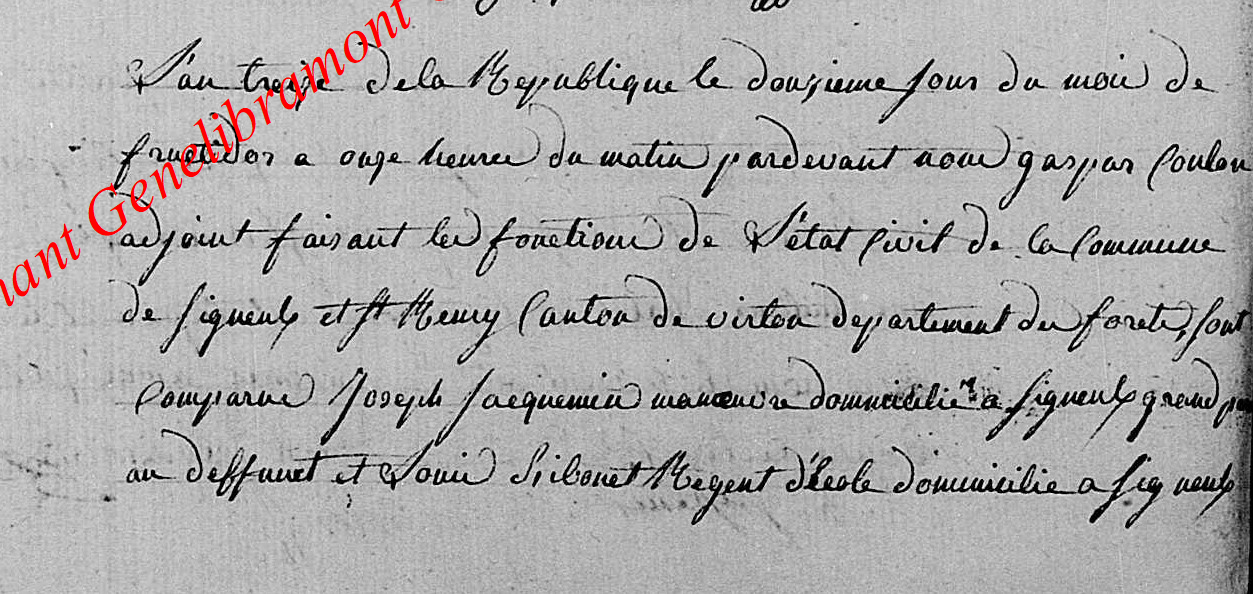 L'an treize de la Republique le douzieme jour du mois de
fructidor a onze heures du matin pardevant nous gaspar Coulon
adjoint faisant les fonctions de L'état Civil de la Commune
de Signeulx et St Remy Canton de virton departement des forets, sont
Comparus Joseph Jacquemin manœuvre domicilié a Signeulx grand
au deffunct et Louis Regent d'école domicilie a Signeulx
nant Genelibramont